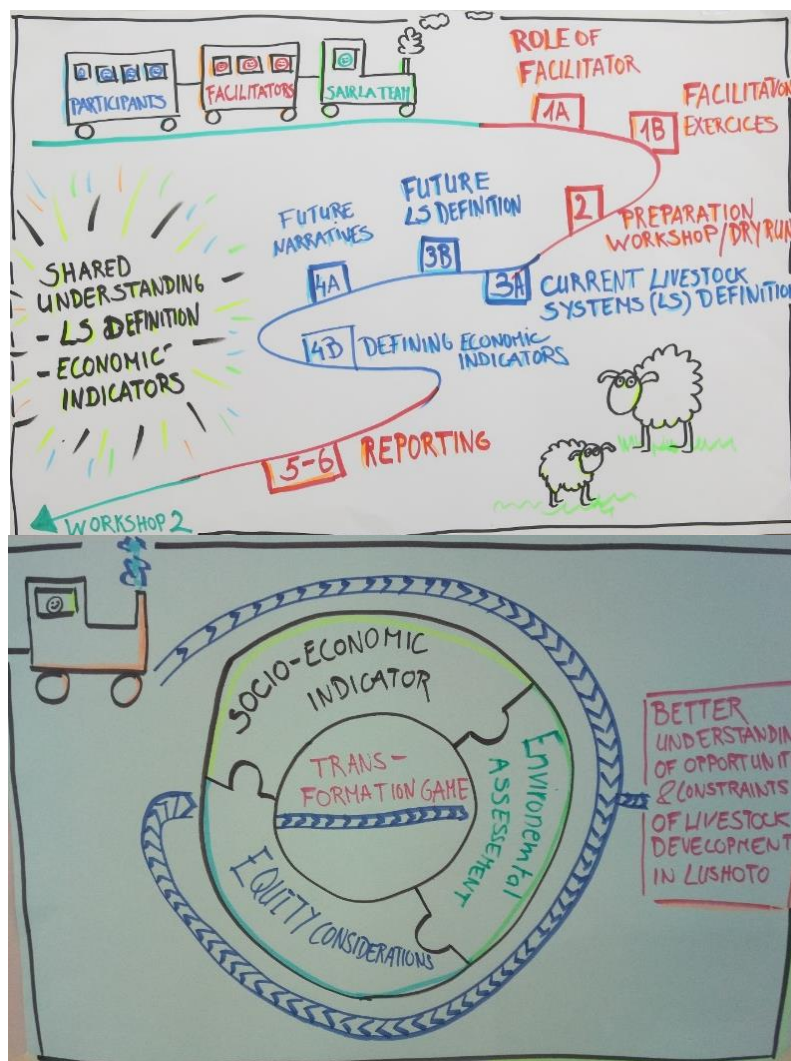 PARTICIPANTS
FACILITATORS
SAIRLA TEAM
ROLE OF
FACILITATOR
1A
1B
FACILITATION
EXERCICES
2
PREPARATION
WORKSHOP/DRY RUN
3A
CURRENT LIVESTOCK
SYSTEMS (LS) DEFINITION
FUTURE
LS DEFINITION
3B
FUTURE
NARRATIVES
4A
4B
DEFINING ECONOMIC
INDICATORS
SHARED
UNDERSTANDING
- LS DEFINITION
- ECONOMIC
INDICATORS
5-6
REPORTING
WORKSHOP 2
SOCIO-ECONOMIC
INDICATOR
TRANS-
FORMATION GAME
Environemtal
ASSESSEMENT
EQUITY CONSIDERATIONS
BETTER
UNDERSTANDIN
OF OPPORTUNIT
& CONSTRAINTS
OF LIVESTOCK
DEVELOPMENT
IN LUSHOTO